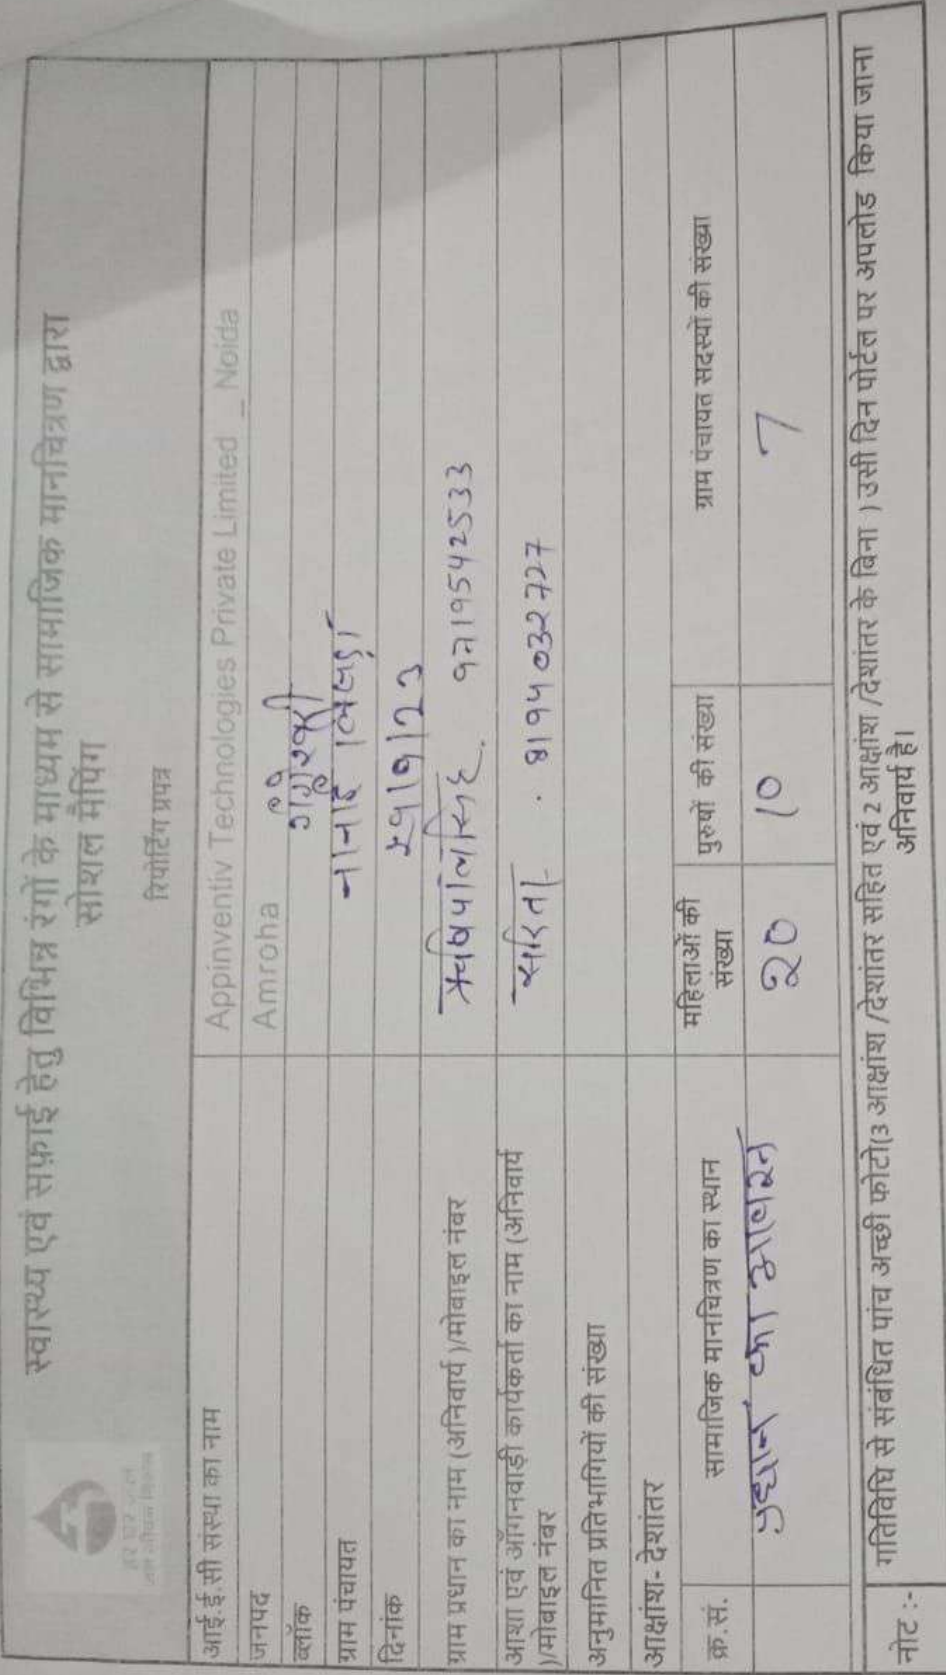 स्वास्थ्य एवं सफाई हेतु विभिन्न रंगों के माध्यम से सामाजिक मानचित्रण द्वारा
सोशल मैपिंग
रिपोर्टिंग प्रपत्र
हर घर जल
जल जीवन मिशन
आई.ई.सी संस्था का नाम Appinventiv Technologies Private Limited _ Noida
जनपद Amroha
ब्लॉक गंगेश्वरी
ग्राम पंचायत
दिनांक 5/9/23
ग्राम प्रधान का नाम (अनिवार्य )/मोबाइल नंबर ऋषिपाल सिंह. 9719542533
आशा एवं आँगनवाड़ी कार्यकर्ता का नाम (अनिवार्य
)/मोबाइल नंबर सरिता . 8194032727
अनुमानित प्रतिभागियों की संख्या
आक्षांश- देशांतर
क्र.सं. सामाजिक मानचित्रण का स्थान महिलाओं की संख्या पुरुषों की संख्या ग्राम पंचायत सदस्यों की संख्या
प्रधान का आवास 20 10 7
नोट :- गतिविधि से संबंधित पांच अच्छी फोटो(3 आक्षांश /देशांतर सहित एवं 2 आक्षांश /देशांतर के बिना ) उसी दिन पोर्टल पर अपलोड किया जाना
अनिवार्य है।